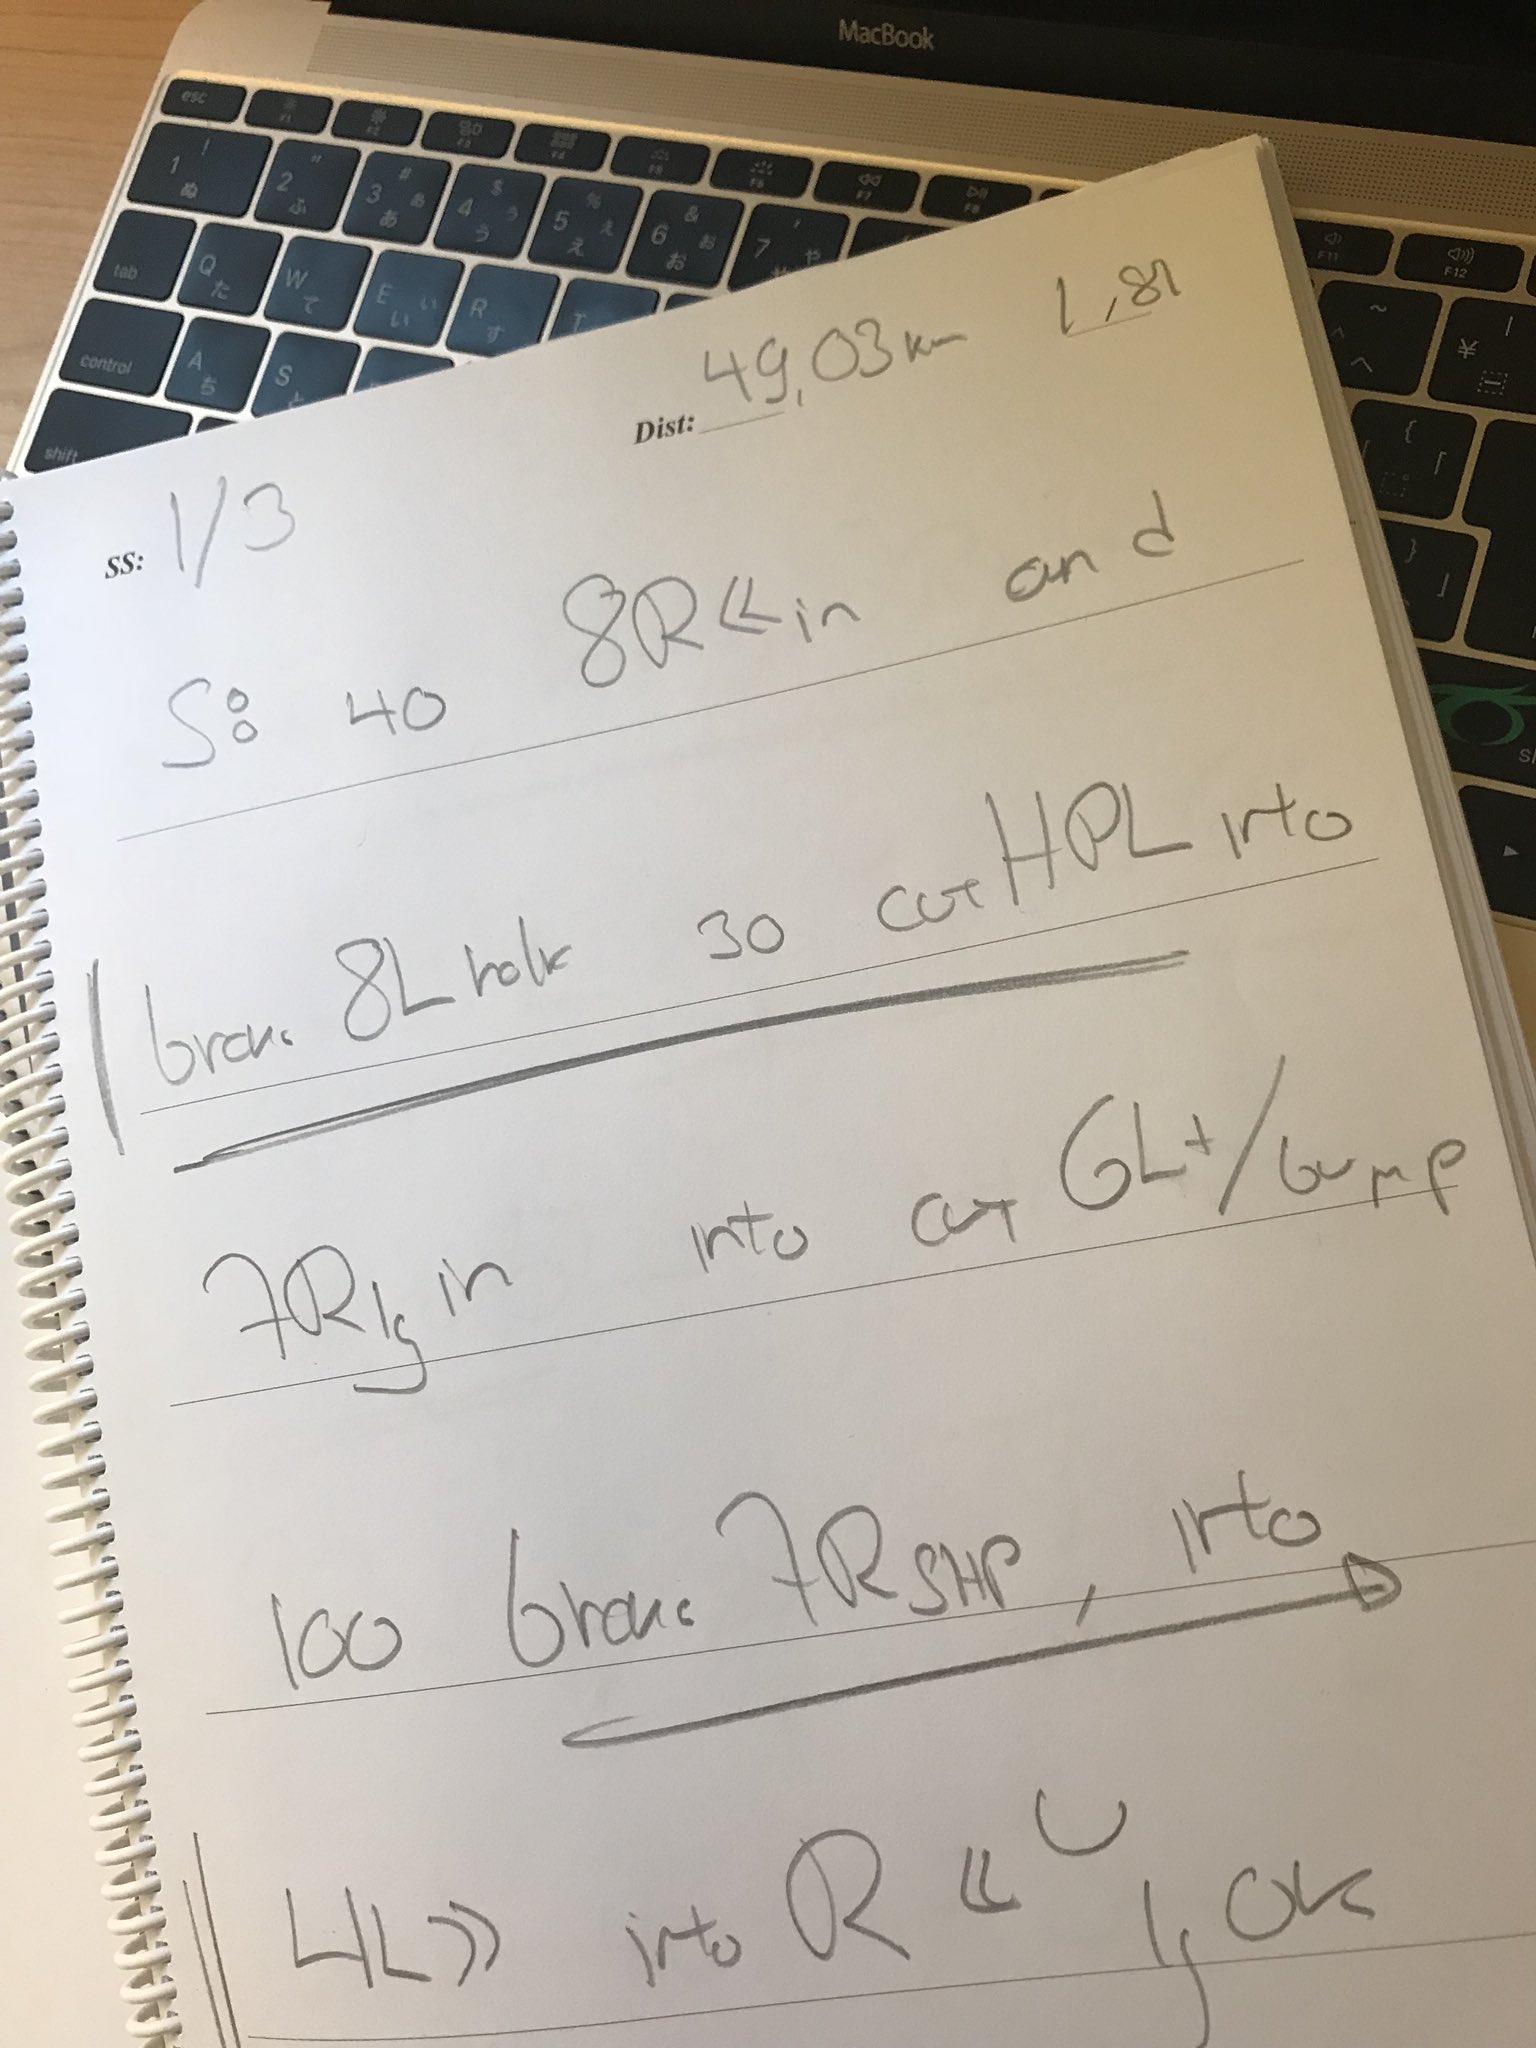 MacBook
esc F1 F2 F3 F4 F5 F6 F7 F8 F11 F12
! 1 ぬ " 2 ふ # 3 ぁ あ $ 4 ぅ う % 5 ぇ え & 6 ぉ お ' 7 ゃ ~ ^ へ | ¥
tab Q た W て E ぃ い R す T { 「
control A ち S と } 」
shift
Dist: 49,03 km 1,81
SS: 1/3
S: 40 8R << in and
8L 30 cut HPL into
7R lg in into cut 6L+/bump
100 7R SHP, into
4L>> into R << lg ok